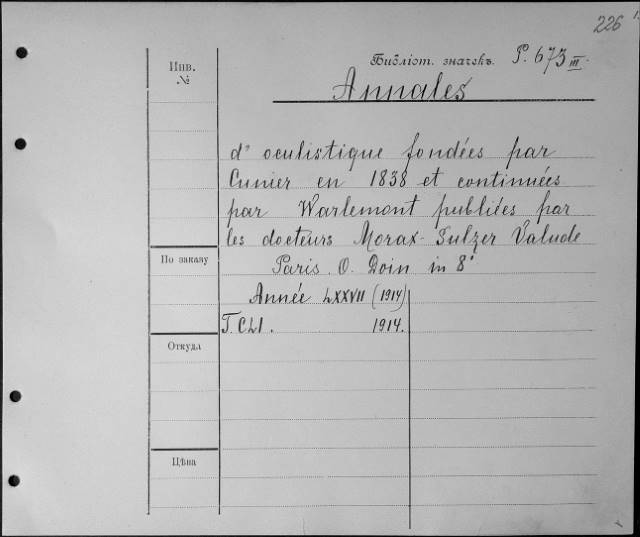 226
Инв.
№
Библіот. значекъ. P. 673 III.
Annales
d'oculistique fondées par
Cunier en 1838 et continuées
par Warlemont publiées par
les docteurs Morax-Sulzer Valude
По заказу
Paris. O. Doin in 8°
Année LXXVII (1914)
T. CLI. 1914.
Откуда
Цѣна